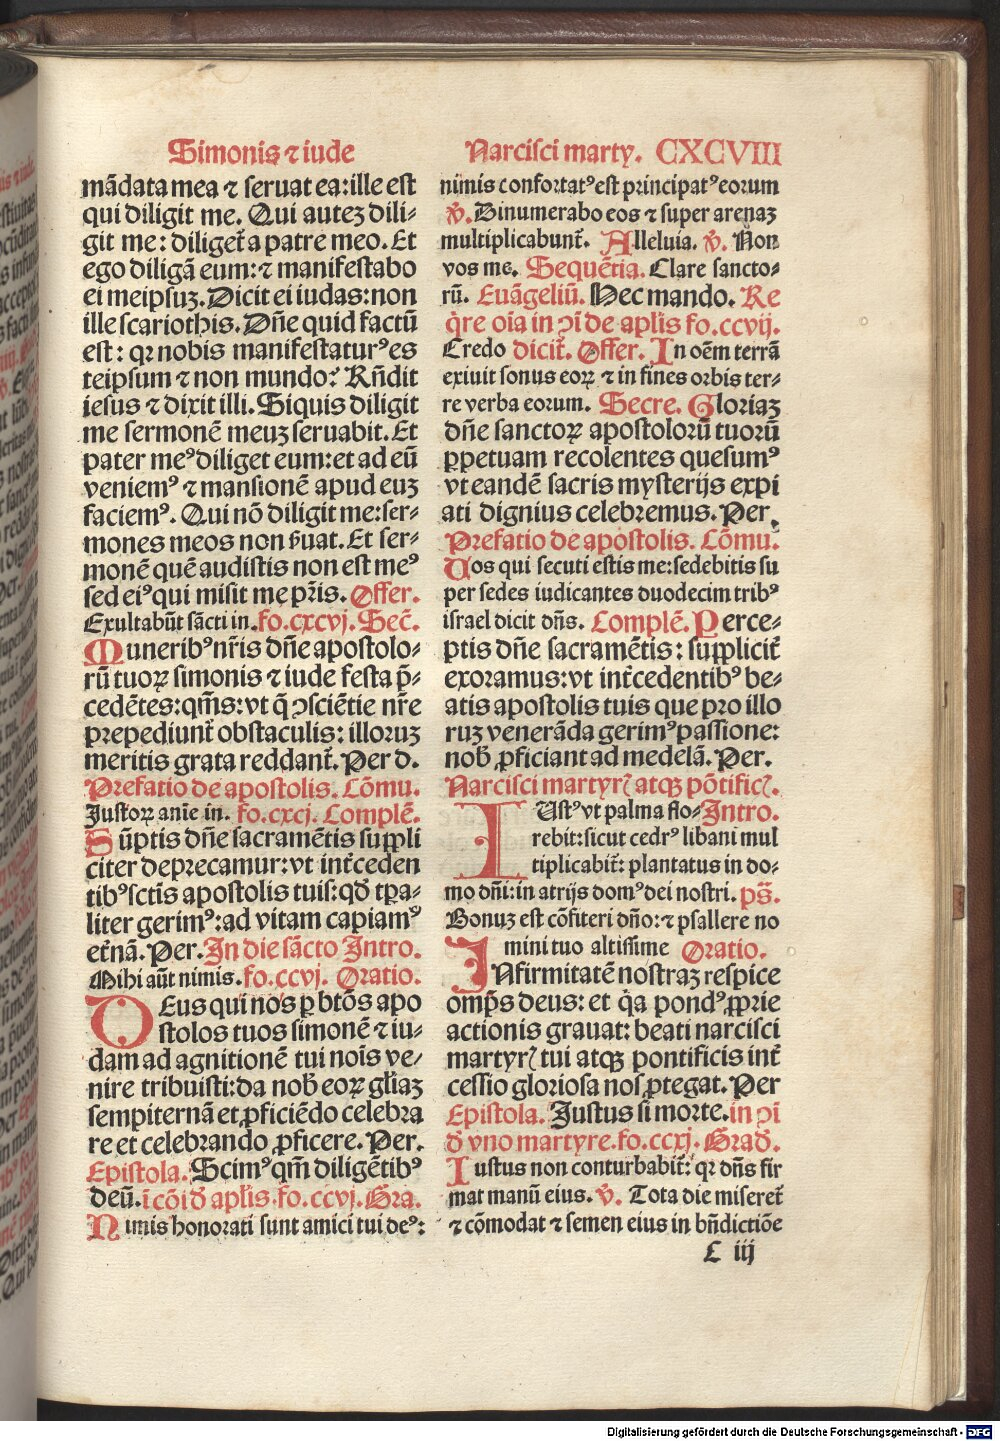 Simonis ⁊ iude
mādata mea ⁊ seruat ea: ille est
qui diligit me. Qui autez dili⸗
git me: diliget᷑ a patre meo. Et
ego diligā eum: ⁊ manifestabo
ei meipsuꝫ. Dicit ei iudas: non
ille scariothis. Dn̄e quid factū
est: qꝛ nobis manifestaturꝰ es
teipsum ⁊ non mundo? Rn̄dit
iesus ⁊ dixit illi. Siquis diligit
me sermonē meuꝫ seruabit. Et
pater meꝰ diliget eum: et ad eū
veniemꝰ ⁊ mansionē apud euꝫ
faciemꝰ. Qui nō diligit me: ser⸗
mones meos non ẜuat. Et ser⸗
monē quē audistis non est meꝰ
sed eiꝰ qui misit me pr̄is. Offer.
Exultabūt sācti in. fo. cxcvj. Sec̄.
Muneribꝰ nr̄is dn̄e apostolo⸗
rū tuoꝝ simonis ⁊ iude festa p̄⸗
cedētes: qm̄s: vt q̄ ↄsciētie nr̄e
prepediunt᷑ obstaculis: illoruꝫ
meritis grata reddant᷑. Per d.
Prefatio de apostolis. Cōmu.
Justoꝝ anīe in. fo. cxcj. Complē.
Sūptis dn̄e sacramētis suppli
citer deprecamur: vt int᷑ceden
tibꝰ sctīs apostolis tuis: qd̄ tꝑa⸗
liter gerimꝰ: ad vitam capiamꝰ
et᷑nā. Per. In die sācto Intro.
Mihi aūt nimis. fo. ccvj. Oratio.
DEus qui nos ꝑ btōs apo
stolos tuos simonē ⁊ iu⸗
dam ad agnitionē tui nois̄ ve⸗
nire tribuisti: da nob̄ eoꝝ gl̄iaꝫ
sempiternā et ꝓficiēdo celebra
re et celebrando ꝓficere. Per.
Epistola. Scimꝰ qm̄ diligētibꝰ
deū. ī cōi d̄ apl̄is. fo. ccvj. Gra.
Nimis honorati sunt amici tui deꝰ:
Narcisci marty. CXCVIII
nimis confortatꝰ est principatꝰ eorum
℣. Dinumerabo eos ⁊ super arenaꝫ
multiplicabunt᷑. Alleluia. ℣. Non
vos me. Sequētia. Clare sancto⸗
rū. Euāgeliū. Hec mando. Re
q̄re oīa in ↄi de apl̄is fo. ccvij.
Credo dicit᷑. Offer. In oēm terrā
exiuit sonus eoꝝ ⁊ in fines orbis ter⸗
re verba eorum. Secre. Gloriaꝫ
dn̄e sanctoꝝ apostolorū tuorū
ꝑpetuam recolentes quesumꝰ
vt eandē sacris mysterijs expi
ati dignius celebremus. Per.
Prefatio de apostolis. Cōmu.
Uos qui secuti estis me: sedebitis su
per sedes iudicantes duodecim tribꝰ
israel dicit dn̄s. Complē. Perce⸗
ptis dn̄e sacramētis: supplicit᷑
exoramus: vt int᷑cedentibꝰ be⸗
atis apostolis tuis que pro illo
ruꝫ venerāda gerimꝰ passione:
nob̄ ꝓficiant ad medelā. Per.
Narcisci martyrꝭ atqꝫ pōtificꝭ.
IUstꝰ vt palma flo⸗ Intro.
rebit: sicut cedrꝰ libani mul
tiplicabit᷑: plantatus in do⸗
mo dn̄i: in atrijs domꝰ dei nostri. ps̄.
Bonuꝫ est cōfiteri dn̄o: ⁊ psallere no
mini tuo altissime Oratio.
INfirmitatē nostraꝫ respice
omp̄s deus: et q̄a pondꝰ ꝓprie
actionis grauat: beati narcisci
martyrꝭ tui atqꝫ pontificis int᷑
cessio gloriosa nos ꝓtegat. Per
Epistola. Justus si morte. in ↄi
d̄ vno martyre. fo. ccxj. Grad̄.
Iustus non conturbabit᷑: qꝛ dn̄s fir
mat manū eius. ℣. Tota die miseret᷑
⁊ cōmodat ⁊ semen eius in bn̄dictiōe
C iij
Digitalisierung gefördert durch die Deutsche Forschungsgemeinschaft - DFG